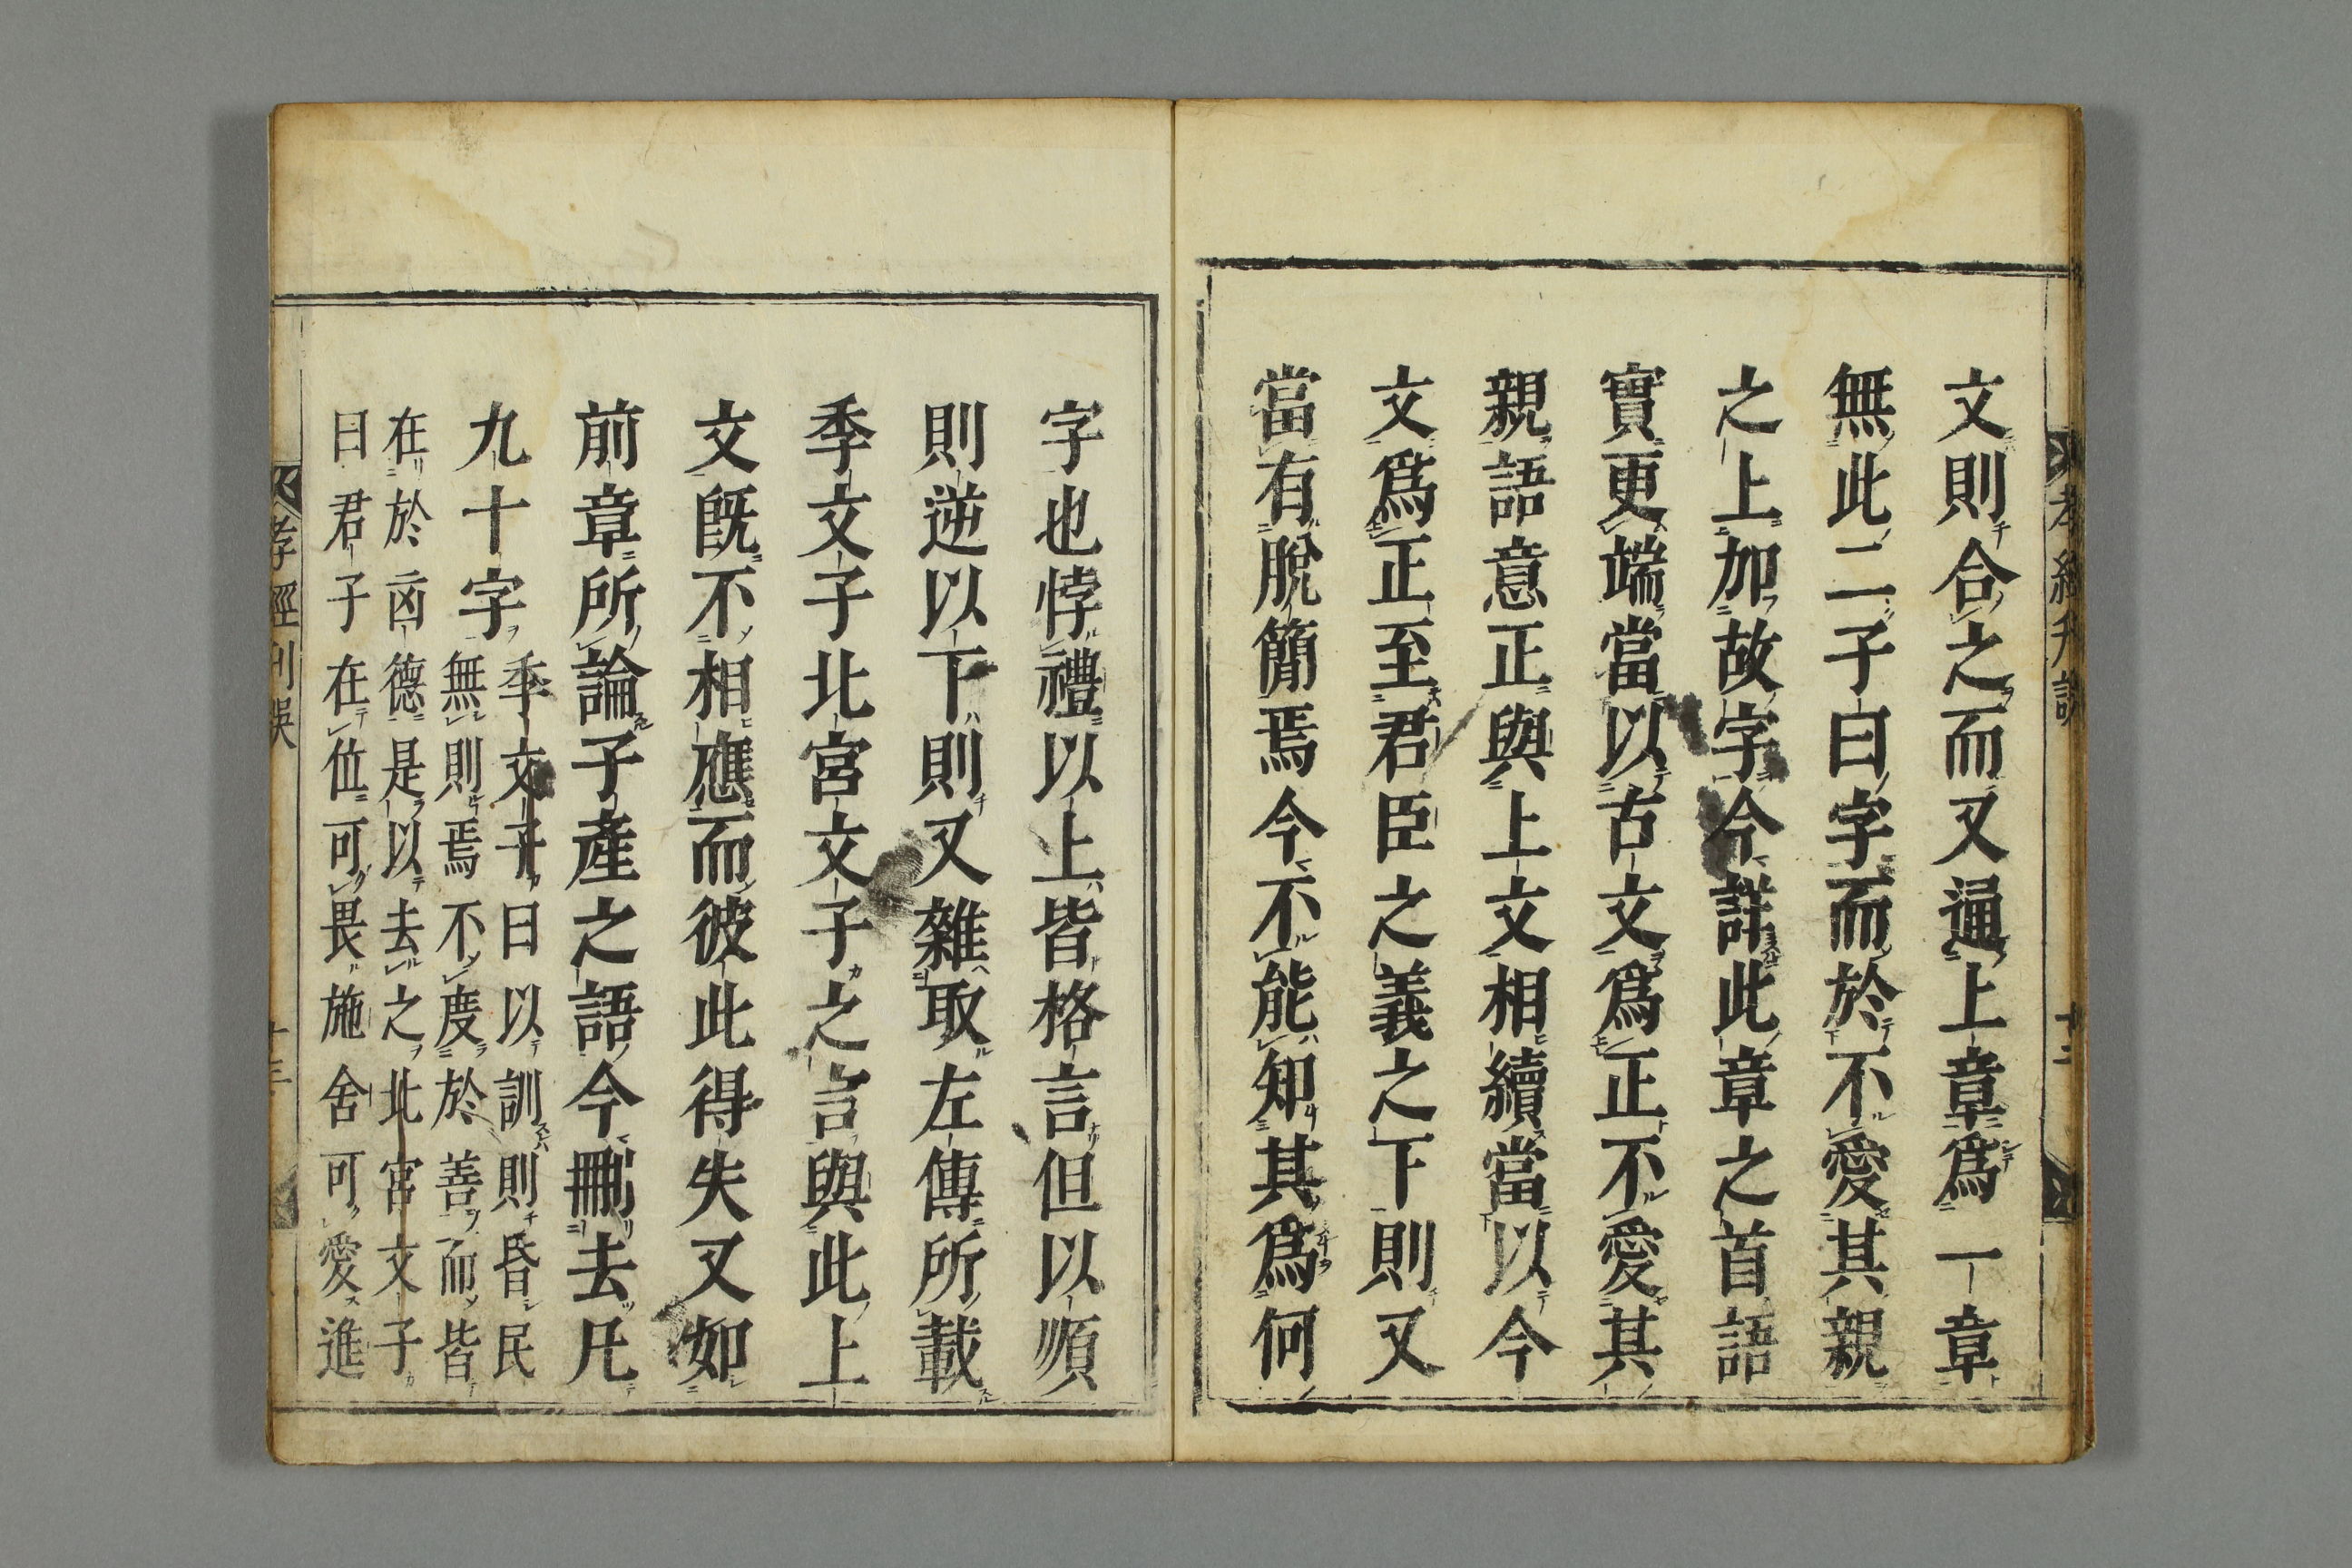 文則合之而又通上章爲一章
無此二子曰字而於不愛其親
之上加故字今詳此章之首語
實更端當以古文爲正不愛其
親語意正與上文相續當以今
文爲正至君臣之義之下則又
當有脫簡焉今不能知其爲何
字也悖禮以上皆格言但以順
則逆以下則又雜取左傳所載
季文子北宮文子之言與此上
文旣不相應而彼此得失又如
前章所論子產之語今刪去凡
九十字
季文子曰以訓則昏民
無則焉不度於善而皆
在於凶德是以去之北宮文子
曰君子在位可畏施舍可愛進
孝經刊誤